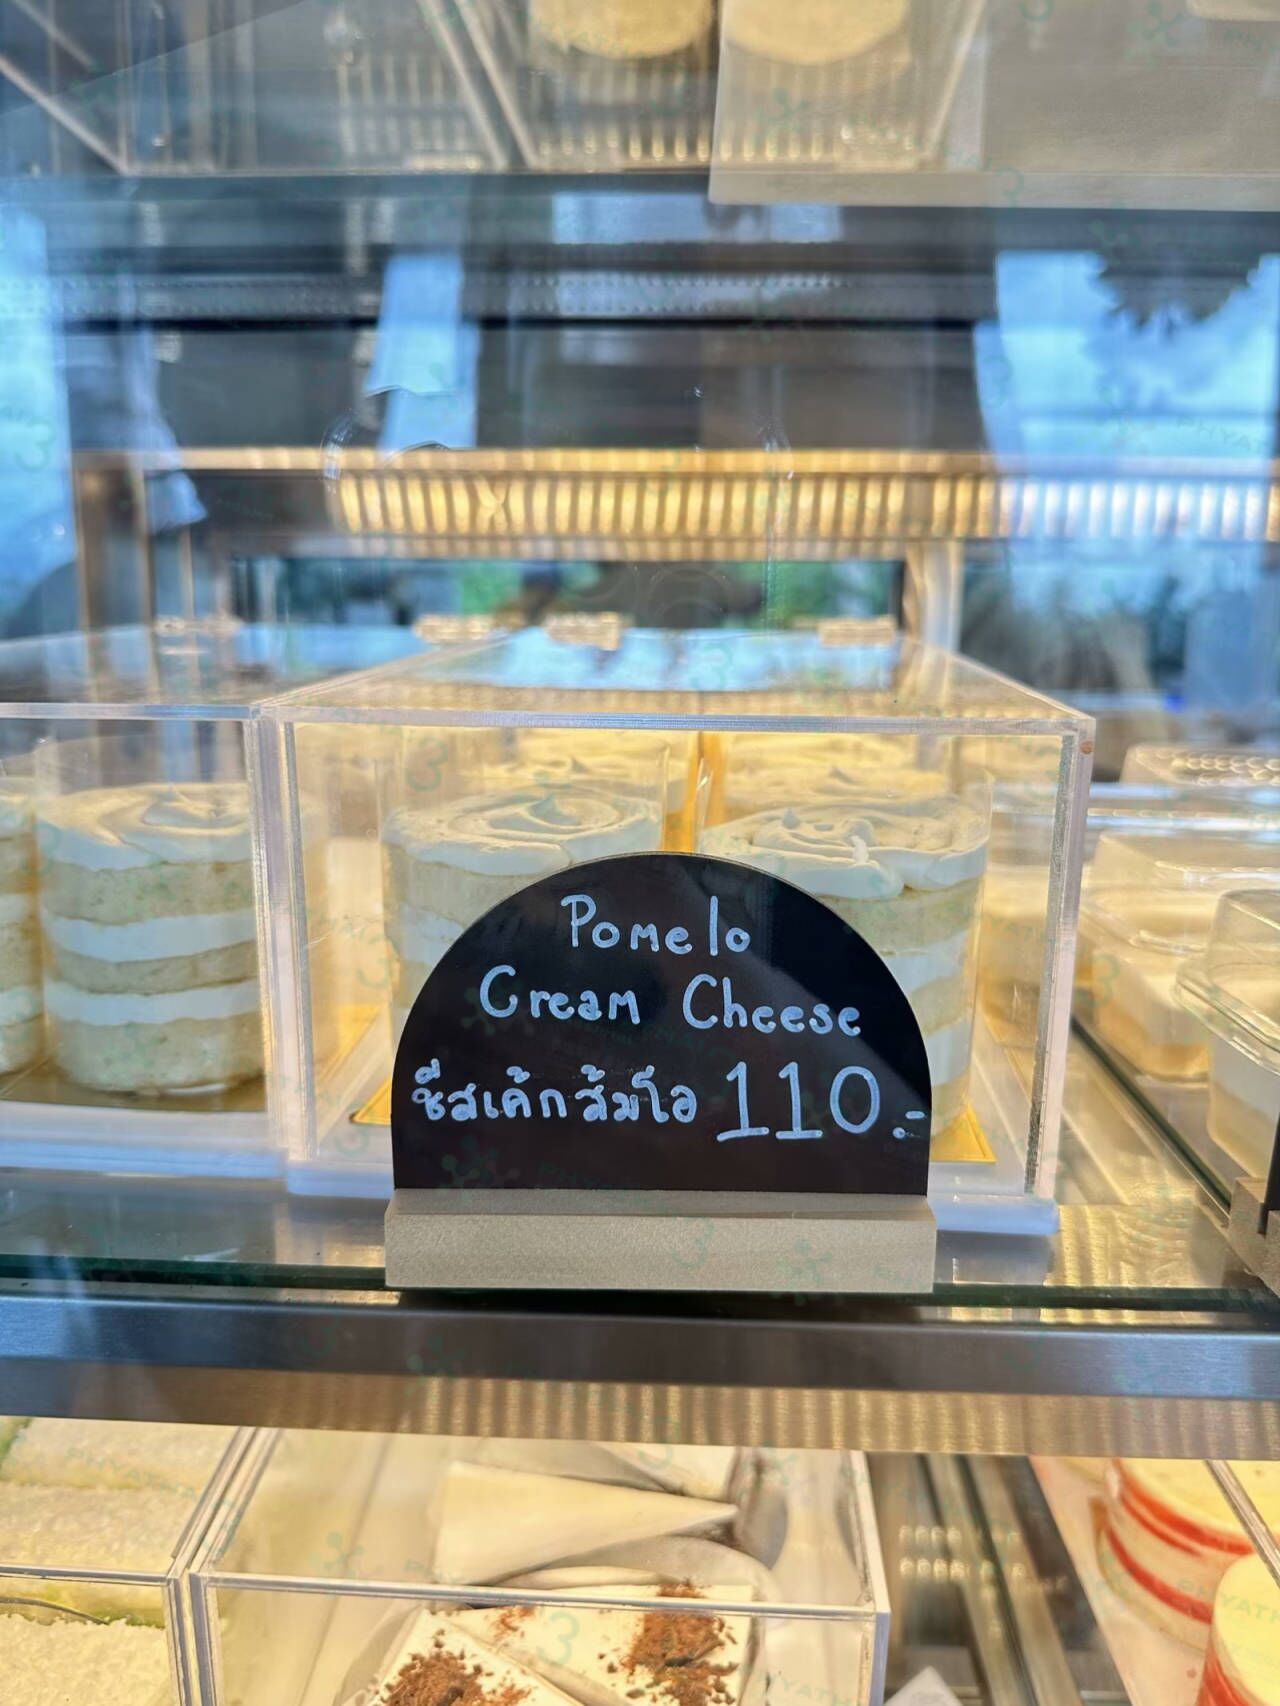 Pomelo
Cream Cheese
ชีสเค้กส้มโอ 110.-